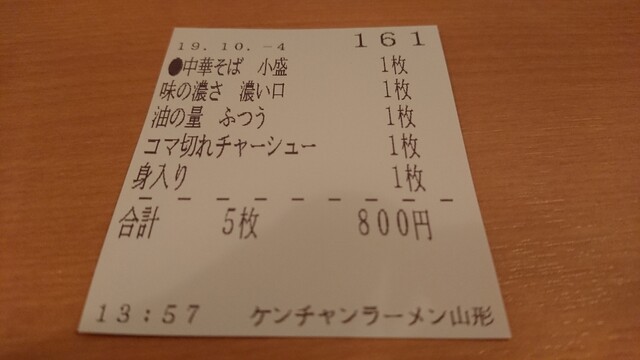 19.10.-4 161
●中華そば 小盛 1枚
味の濃さ 濃い口 1枚
油の量 ふつう 1枚
コマ切れチャーシュー 1枚
身入り 1枚
合計 5枚 800円
13:57 ケンチャンラーメン山形